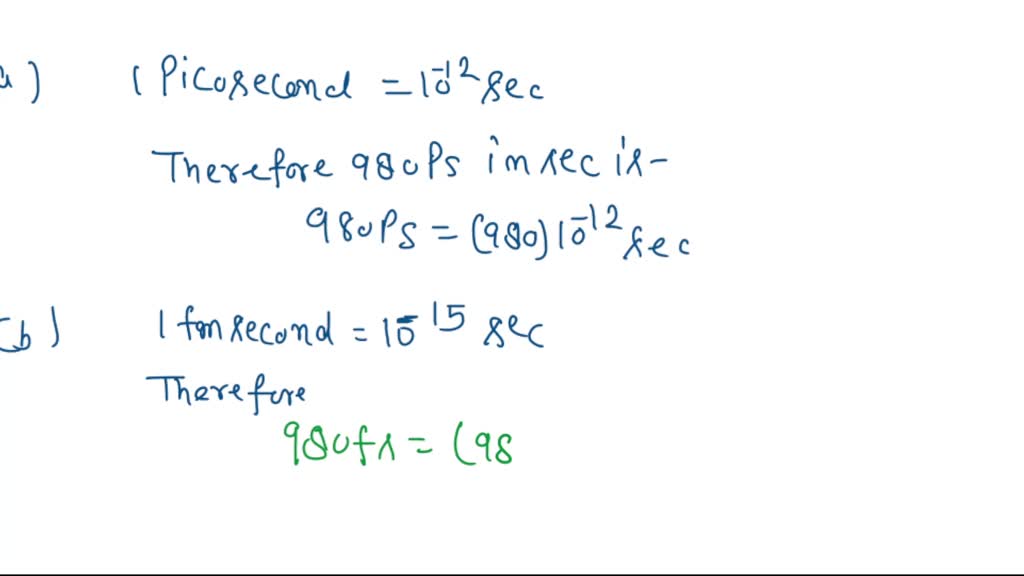 a) 1 Picosecond = 10^-12 sec
Therefore 980Ps in sec is-
980Ps = (980)10^-12 sec
(b) 1 fmsecond = 10^-15 sec
Therefore
980fs = (98